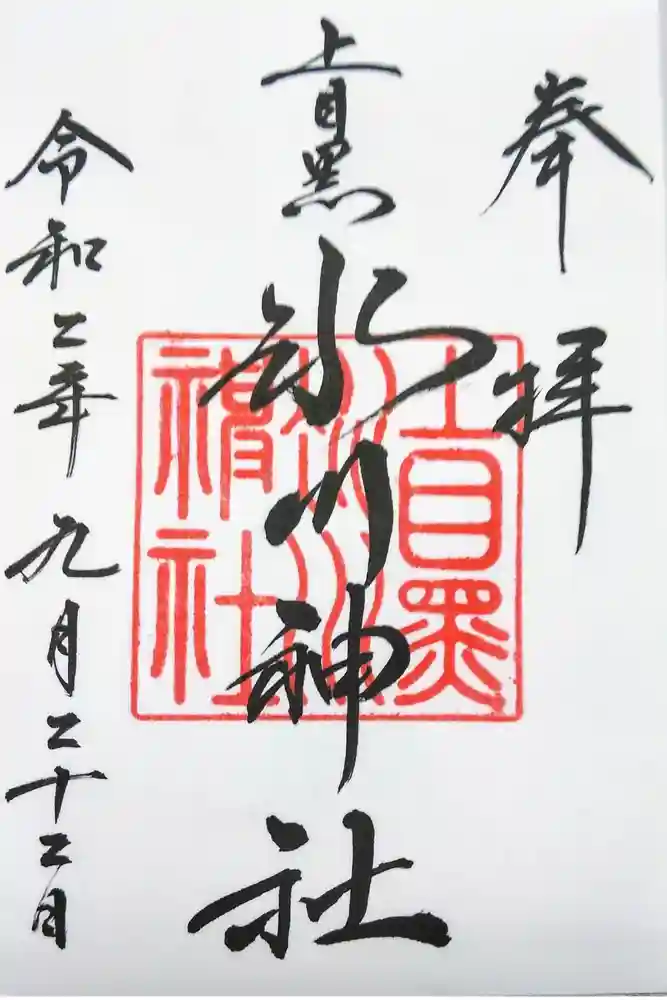 奉拝
上目黒
氷川神社
令和二年九月二十二日
上目黒
氷川
神社